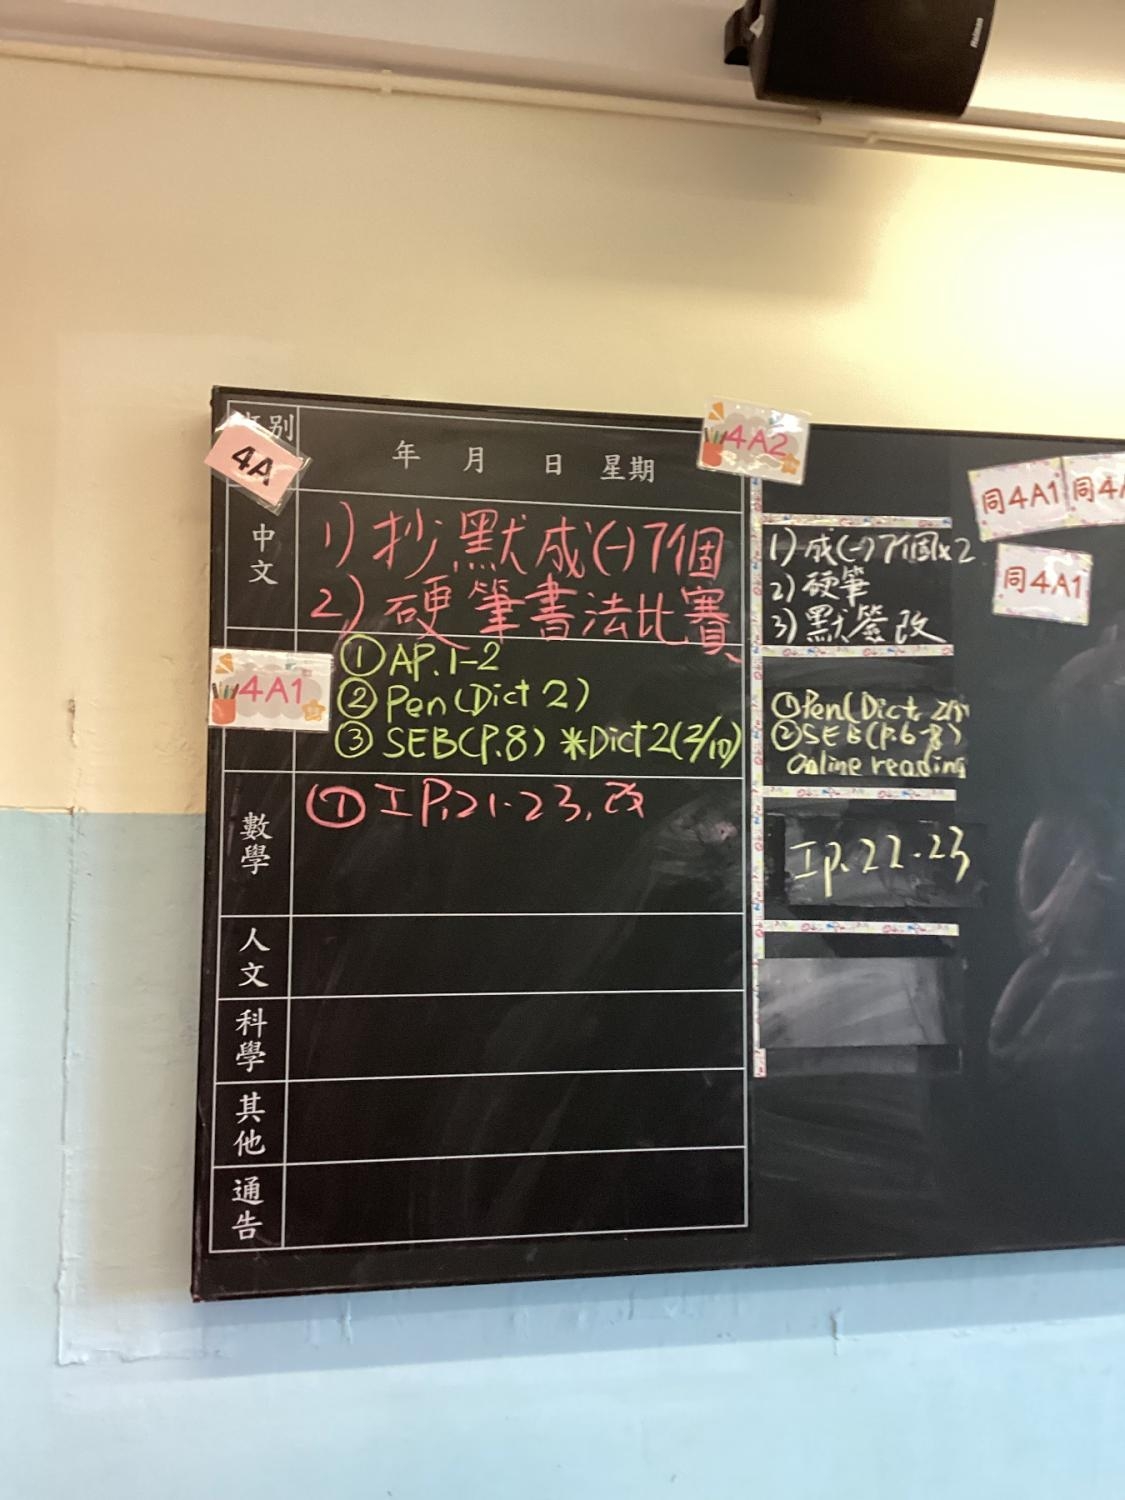 別
4A
年 月 日 星期
4A2
同4A1
同4A
同4A1
中文
1) 抄默成(一)7個
2) 硬筆書法比賽
4A1
① AP.1-2
② Pen(Dict 2)
③ SEB(P.8) *Dict2(2/10)
數學
① IP.21-23,改
人文
科學
其他
通告
1) 成(一)7個x2
2) 硬筆
3) 默簽改
① Pen(Dict.
② SEB(P.6-8)
Online reading
Ip.22-23